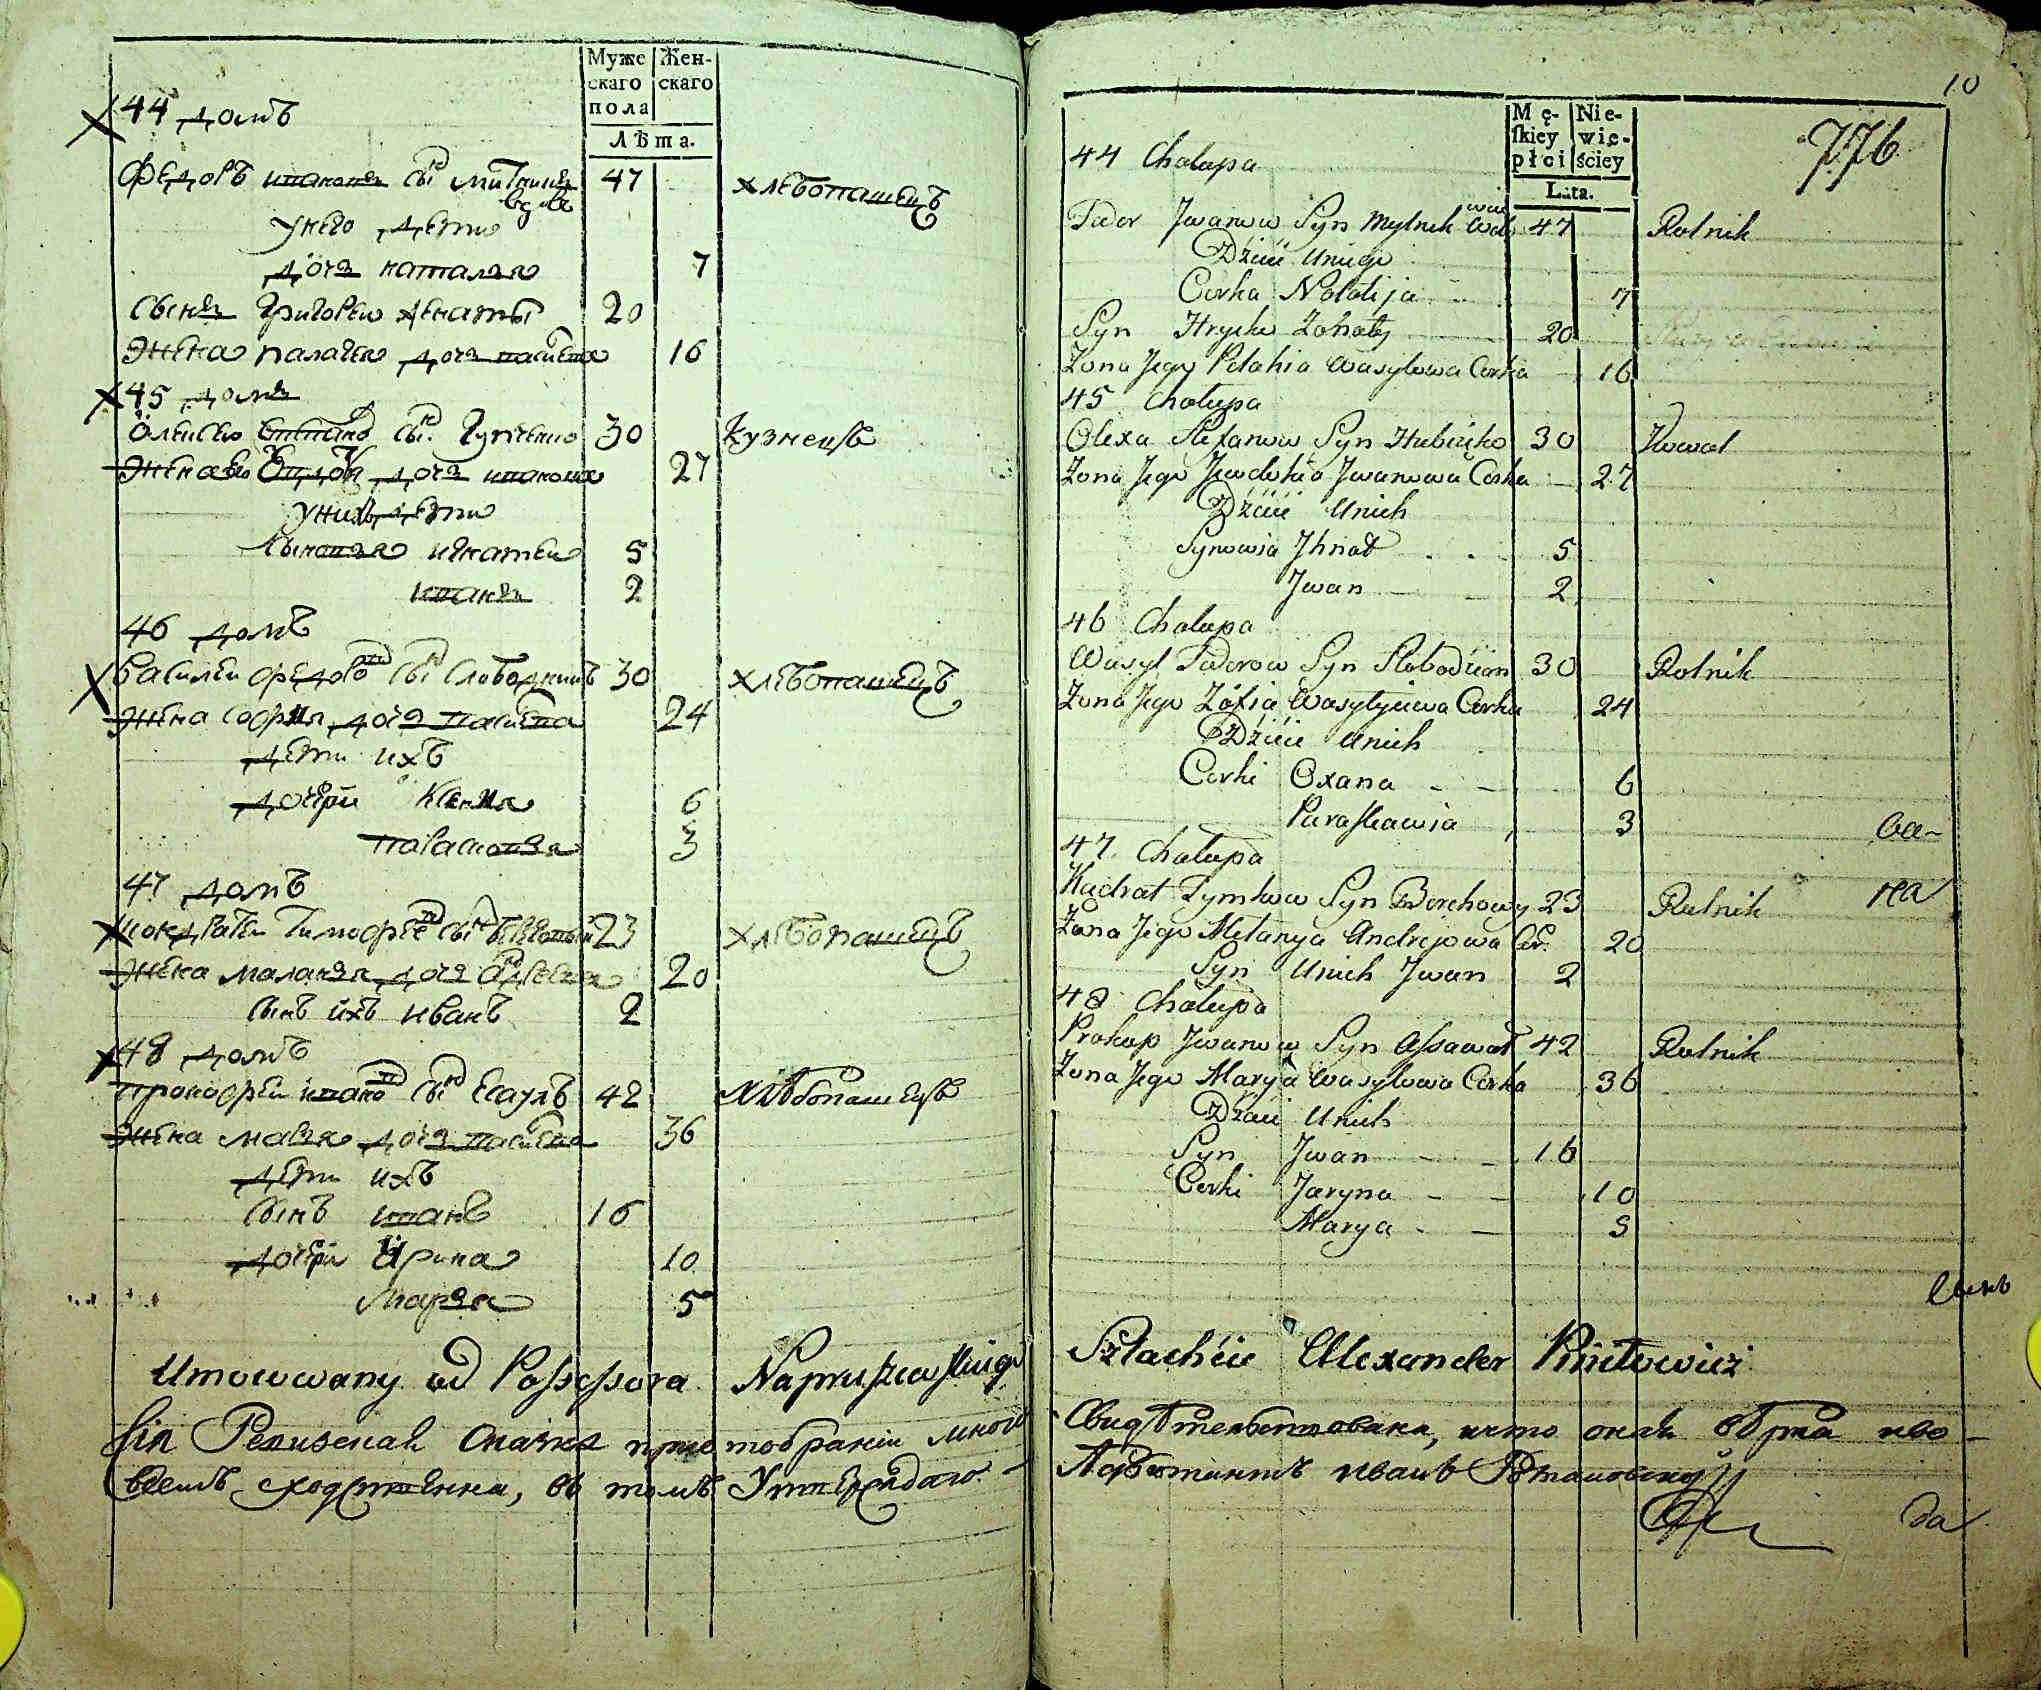 Муже
скаго
пола
Жен-
скаго
Лѣта.
44 домъ
Федоръ ивановъ сы мѣлникъ 47 хлебопашецъ
вдов
у него дети
дочь наталья 7
Сынъ Григореи женаты 20
Жена палагея дочь васильева 16
45 домъ
Олексеи степано сы. Губченко 30 Кузнецъ
Жена ево дочь иванова 27
у нихъ дети
Сыновья игнатеи 5
иванъ 2
46 домъ
Василеи федоро сы слободянинъ 30 хлебопашецъ
Жена софия дочь васильева 24
дети ихъ
дочери Ксения 6
3
47 домъ
Кондратеи тимофее сы 23 хлебопашецъ
Жена маланья дочь андреева 20
сынъ ихъ иванъ 2
48 домъ
прокофеи ивано сы есаулъ 42 хлѣбопашецъ
Жена мавья дочь васильева 36
дети ихъ
сынъ иванъ 16
дочери Ирина 10
Марья 5
Umocowany od Possessora Napruszewskiego
Сія Ревизская Сказка при отобраніи мною
всемъ сходственна, въ томъ Утверждаю.
10
776
Mę-
skiey
płci
Nie-
wie-
ściey
Lata.
44 Chałupa
Fedor Jwanow Syn Mylnik Wdo 47 Rolnik
wiec
Dzieci Uniego
Corka Natalija 7
Syn Hrycko Zonaty 20
Zona Jego Pelahia Wasylowa Corka 16
45 Chałupa
Olexa Stefanow Syn Hubczko 30 Kowal
Zona Jego Jewdokia Jwanowa Corka 27
Dzieci Unich
Synowia Jhnat 5
Jwan 2
46 Chałupa
Wasyl Fedorow Syn Słobodzian 30 Rolnik
Zona Jego Zofia Wasylijewa Corka 24
Dzieci Unich
Corki Oxana 6
Paraskawia 3
47 Chałupa
Kadrat Tymkow Syn Berehowy 23 Rolnik
Zona Jego Melanya Andrejowa Cor. 20
Syn Unich Jwan 2
48 Chałupa
Prokop Jwanow Syn Assawoł 42 Rolnik
Zona Jego Marya Wasylowa Corka 36
Dzieci Unich
Syn Jwan 16
Corki Jaryna 10
Marya 5
на
Szlachcic Alexander
Свидѣтельствована, и что она въ
Адъютантъ иванъ
да